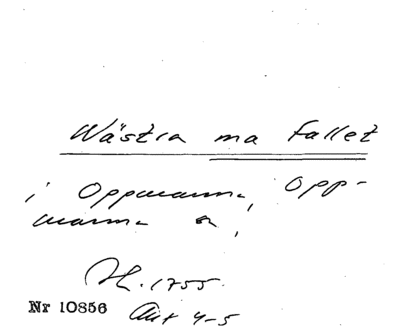 Wästra ma fallet
i Oppmanna, Opp-
manna s,
Hl. 1755.
Nr 10856 Akt 4-5